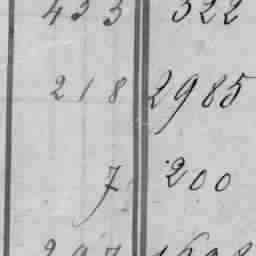 433 322
218 2985
7 200